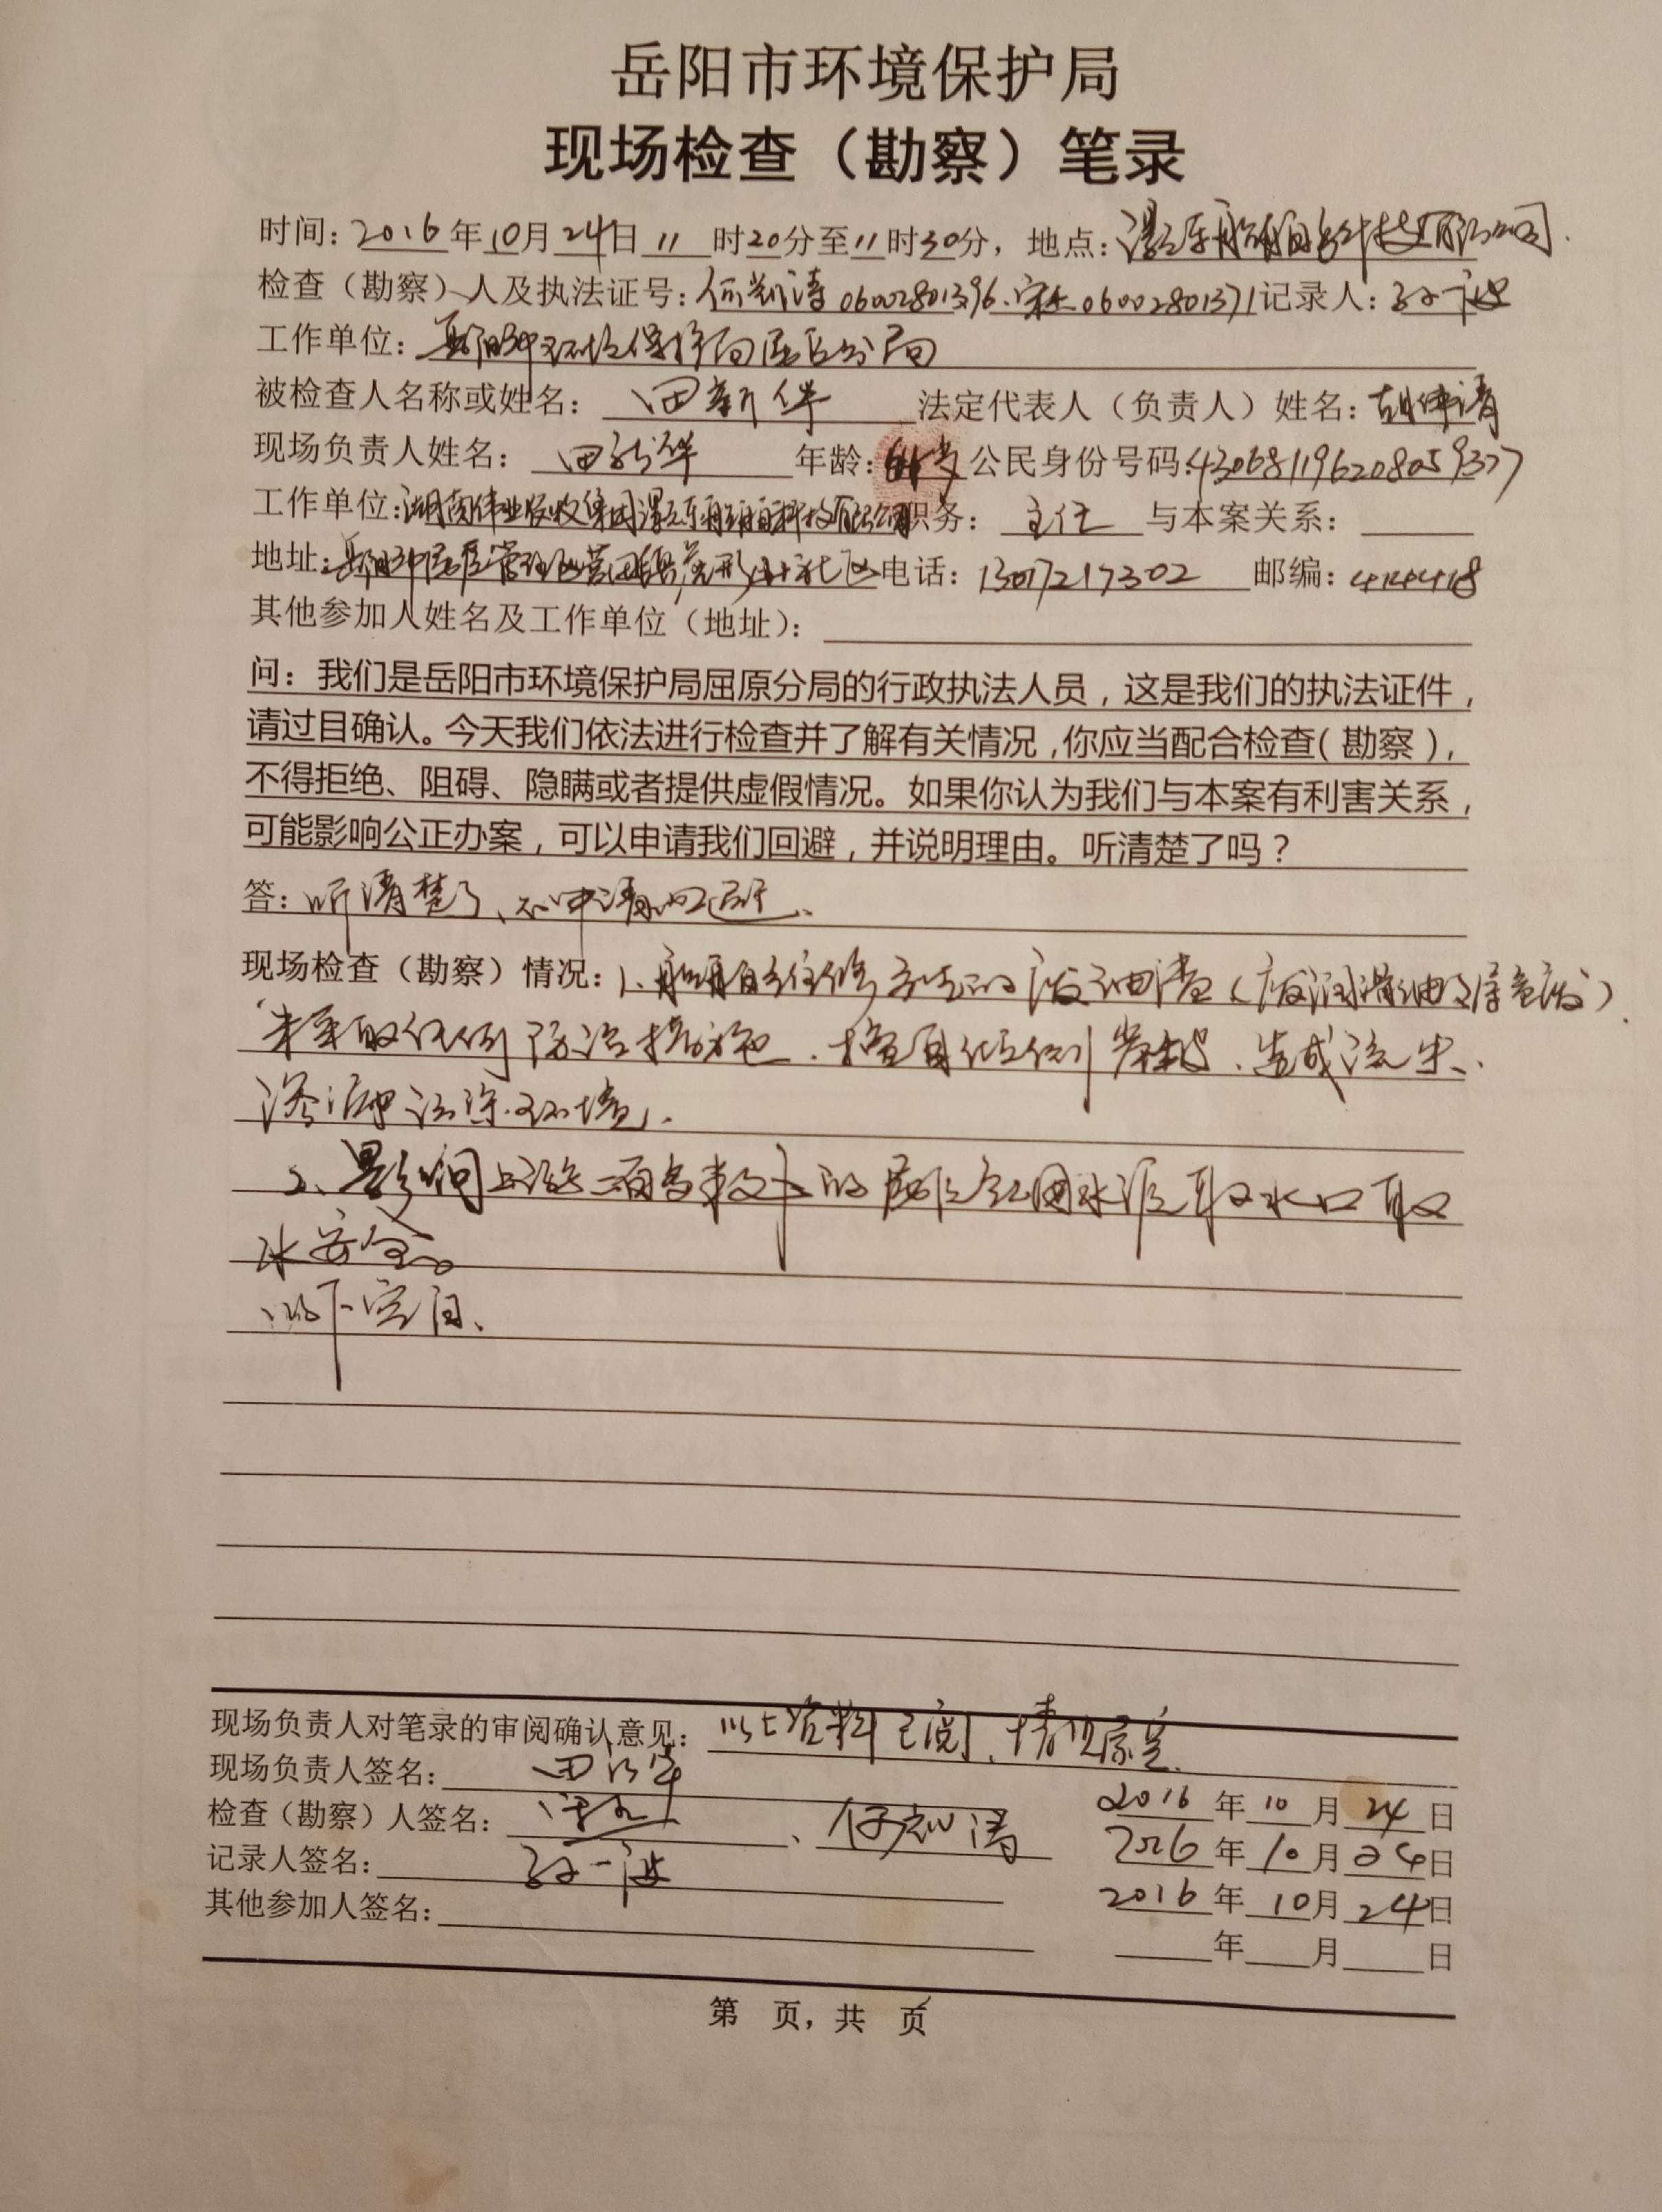 岳阳市环境保护局
现场检查（勘察）笔录
时间：2016年10月24日11时20分至11时30分，地点：船舶科技有限公司.
检查（勘察）人及执法证号：06002801396.宋 06002801371记录人：
工作单位：岳阳市环境保护局屈原分局
被检查人名称或姓名：田新华 法定代表人（负责人）姓名：胡伟清
现场负责人姓名：田新华 年龄：岁 公民身份号码：430681196208059377
工作单位：湖南伟业 集团 船舶科技有限公司 职务：主任 与本案关系：
地址：岳阳市屈原管理区营田镇 社区 电话：13017217302 邮编：414418
其他参加人姓名及工作单位（地址）：
问：我们是岳阳市环境保护局屈原分局的行政执法人员，这是我们的执法证件，
请过目确认。今天我们依法进行检查并了解有关情况，你应当配合检查（勘察），
不得拒绝、阻碍、隐瞒或者提供虚假情况。如果你认为我们与本案有利害关系，
可能影响公正办案，可以申请我们回避，并说明理由。听清楚了吗？
答：听清楚了、不申请回避、
现场检查（勘察）情况：1、船舶维修产生的废油渣（废润滑油 ）
未采取任何防治措施.擅自倾倒 、造成流失、
渗漏污染环境，
2、影响上游 的 水源取水口取
水安全。
以下空白、
现场负责人对笔录的审阅确认意见：以上资料已阅、情况属实.
现场负责人签名：田新华
2016年10月24日
检查（勘察）人签名：、何 涛
2016年10月24日
记录人签名：
2016年10月24日
其他参加人签名：
年 月 日
第 页，共 页